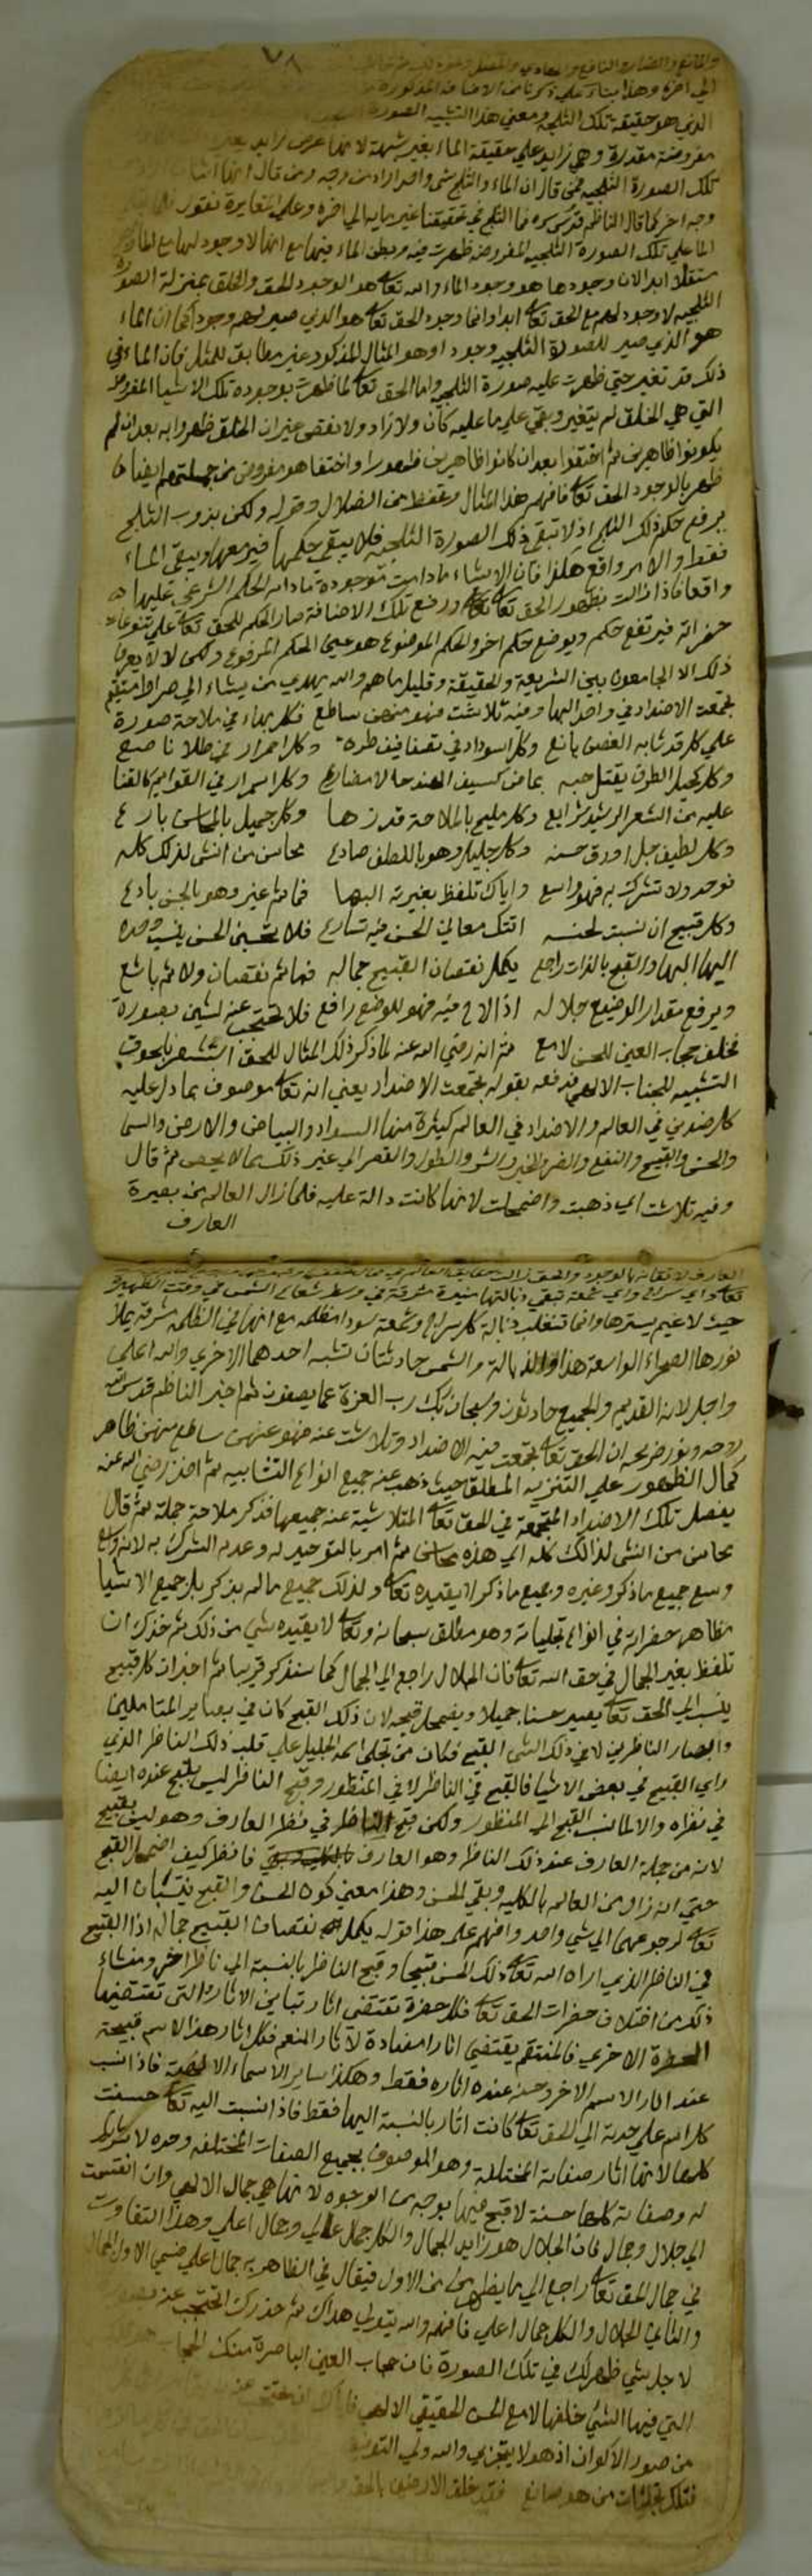 والمانع والضار والنافع والهادي والمضل
الى اخره وهذا بناء على ذكرنا من الاضافة المذكورة
الذي هو حقيقة تلك الثلجة ومعنى هذا التشبيه الصورة
مفروضة مقدرة وهي زايد على حقيقة الماء بغير شبهة لانها عرض زايد
تلك الصورة الثلجيه فمن قال ان الماء والثلج شي واحد اراد من وجه ومن قال انهما اثنان
وجه اخر كما قال الناظم قدس سره فما الثلج في تحقيقنا غير مايه الى اخره وعلى المغايرة نقول
الماء على تلك الصورة الثلجيه المفروضة ظهرت فيه وبطن الماء فيها مع انها لا وجود لها مع الماء
مستقلا ابدا لان وجودها هو وجود الماء والله تعالى هو الوجود الحق والخلق بمنزلة الصورة
الثلجيه لا وجود لهم مع الحق تعالى ابدا وانما وجود الحق تعالى هو الذي صير لهم وجود كما ان الماء
هو الذي صير للصورة الثلجيه وجودا وهو المثال المذكور غير مطابق للمثل فان الماء في
ذلك قد تغير حتى ظهرت عليه صورة الثلجيه واما الحق تعالى لما ظهرت بوجوده تلك الاشيا المفروضة
التي هي الخلق لم يتغير وبقي على ما عليه كان ولا زاد ولا نقص غير ان الخلق ظهروا به بعد ان لم
يكونوا ظاهرين ثم اختفوا بعد ان كانوا ظاهرين فظهورا واختفا هو مفروض من جملتهم ايضا
ظهر بالوجود الحق تعالى فافهم هذا المثال وتحفظ من الضلال وقوله ولكن بذوب الثلج
يرفع حكم ذلك الثلج اذ لا تبقى تلك الصورة الثلجيه فلا يبقى حكمها فيزول معها ويبقى الماء
فقط والامر واقع هكذا فان الاشياء ما دامت موجودة ما دام الحكم الشرعي عليها
واقعا فاذا زالت بظهور الحق تعالى ورفع تلك الاضافة صار الحكم للحق تعالى على تنوعات
حضراته فيرتفع حكم ويوضع حكم اخر والحكم الموضوع هو عين الحكم المرفوع ولكن لا يعرف
ذلك الا الجامعون بين الشريعة والحقيقة وقليل ما هم والله يهدي من يشاء الى صراط مستقيم
تجمعت الاضداد في واحد البها وفيه تلاشت فهو منهن ساطع فكل بهاء في ملاحة صورة
على كل قد شابه الغصن يانع وكل اسوداد في تصفايف طرة وكل احمرار في طلا ناصع
وكل كحيل الطرف يقتل حبه بماض كسيف الهند حالا مضارع وكل اسمرار في القوايم كالقنا
عليه من الشعر الرشيد شرايع وكل مليح بالملاحة قد زها وكل جميل بالمحاسن بارع
وكل لطيف جل او دق حسنه وكل جليل وهو باللطف صادع محاسن من انشى لذلك كله
فوحد ولا تشرك به فهو واسع واياك تلفظ بغيرية البها فما ثم غير وهو بالحسن بادع
وكل قبيح ان نسبت لحسنه اتتك معاني الحسن فيه تسارع فلا تحسبن الحسن ينسب وحده
اليها البها والقبح بالذات راجع يكمل نقصان القبيح جماله فما ثم نقصان ولا ثم باشع
ويرفع مقدار الوضيع جلاله اذا لاح فيه فهو للوضع رافع فلا تحتجب عنه لشين بصورة
فخلف حجاب العين للحسن لامع ثم انه رضي الله عنه لما ذكر ذلك المثال للحق استشعر بالحوق
التشبيه للجناب الالهي فدفعه بقوله تجمعت الاضداد يعني انه تعالى موصوف بما دل عليه
كل ضدين في العالم والاضداد في العالم كثيرة منها السواد والبياض والارض والسما
والحسن والقبيح والنفع والضر والخير والشر والطول والقصر الى غير ذلك مما لا يحصى ثم قال
وفيه تلاشت اي ذهبت واضمحلت لانها كانت دالة عليه فلما زال العالم من بصيرة
العارف
تعالى واي سراج واي شمعة تبقى ذبالتها منيرة مشرقة في وسط شعاع الشمس في وقت الظهيرة
حيث لا غيم يسترها وانما تنقلب ذبالة كل سراج وشمعة سودا مظلمه مع انها في الظلمه مشرقه يملا
نورها الصحراء الواسعة هذا والذبالة والشمس حادثتان تشبه احدهما الاخرى والله اعلى
واجل لانه القديم والجميع حادثون وسبحان ربك رب العزة عما يصفون ثم اخبر الناظم قدس الله
روحه ونور ضريحه ان الحق تعالى تجمعت فيه الاضداد وتلاشت عنه فهو عنهن ساطع منهن ظاهر
كمال الظهور على التنزيه المطلق حيث ذهب عنه جميع انواع التشابيه ثم اخذ رضي الله عنه
يفصل تلك الاضداد المتجمعة في الحق تعالى المتلاشية عنه جميعها فذكر ملاحة جملة ثم قال
محاسن من انشى لذالك كله اي هذه محاسن ثم امر بالتوحيد له وعدم الشرك به لانه واسع
وسع جميع ما ذكر وغيره وجميع ما ذكر لا يقيده تعالى ولذلك جميع ما لم يذكر بل جميع الاشيا
مظاهر حضراته في انواع تجلياته وهو مطلق سبحانه وتعالى لا يقيده شي من ذلك ثم حذرك ان
تلفظ بغير الجمال في حق الله تعالى فان الجلال راجع الى الجمال كما سنذكر قريبا ثم اخبر ان كل قبيح
ينسب الى الحق تعالى يصير حسنا جميلا ويضمحل قبحه لان ذلك القبح كان في بصاير المتاملين
وابصار الناظرين لا في ذلك الشي القبيح فكان من تجلى اسمه الجليل على قلب ذلك الناظر الذي
راي القبيح في بعض الاشيا فالقبح في الناظر لا في المنظور وقبح الناظر ليس بقبح عنده ايضا
في نفسه والا لما نسب القبح الى المنظور ولكن قبح الناظر في نظر العارف وهو ليس بقبيح
لانه من جملة العارف عند ذلك الناظر وهو العارف فانظر كيف اضمحل القبح
حتى انه زاد من العالم بالكليه وبقي الحسن وهذا معنى كون الحسن والقبح ينتسبان اليه
تعالى لرجوعهما الى شي واحد وافهم على هذا قوله يكمل نقصان القبيح جماله اذا القبيح
في الناظر الذي اراه الله تعالى ذلك الحسن قبيحا وقبح الناظر بالنسبة الى ناظر اخر ومنشاء
ذلك من اختلاف حضرات الحق تعالى فكل حضرة تقتضي اثار تباين الاثار التي تقتضيها
الحضرة الاخرى فالمنتقم يقتضي اثارا مضادة لاثار المنعم فكل اثار هذا الاسم قبيحة
عند اثار الاسم الاخر وحسنه عنده اثاره فقط وهكذا ساير الاسماء الالهية فاذا نسب
كل اسم على حدته الى الحق تعالى كانت اثار بالنسبة اليها فقط فاذا نسبت اليه تعالى حسنت
كلها لانها اثار صفاته المختلفة وهو الموصوف بجميع الصفات المختلفه وحده لا شريك
له وصفاته كلها حسنة لا قبح فيها بوجه من الوجوه لانها هي جمال الالهي وان انقسمت
الى جلال وجمال فان الجلال هو زايد الجمال والكل جمال عالي وجمال اعلى وهذا التفاوت
في جمال الحق تعالى راجع الى ما يظهر من الاول فيقال في الظاهر به جمال اعلى ضمن الاول الجمال
والثاني الجلال والكل جمال اعلى فافهم والله يتولى هداك ثم حذرك التحجب عنه
لاجل شي ظهر لك في تلك الصورة فان حجاب العين الباصرة منك الحجاب
التي فيها الشي خلفها لامع الحسن الحقيقي الالهي فاياك ان تحتجب عنه
من صور الاكوان اذ هو لا يتجزى والله ولي التوفيق
فتلك تجليات من هو صانع فقد خلق الارضين بالحق